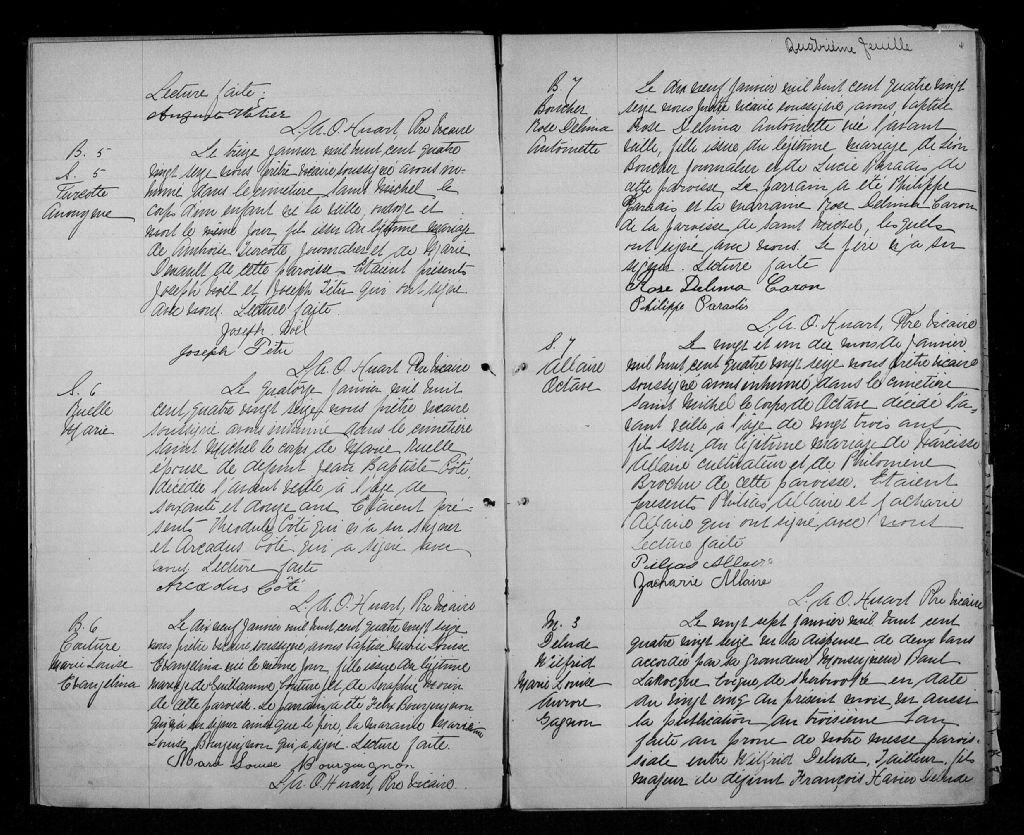 Lecture faite.
L. A. O. Huart, Ptre Vicaire
B. 5
S. 5
Turcotte
Anonyme
Le treize janvier mil huit cent quatre
vingt seize nous prêtre vicaire soussigné avons in-
humé dans le cimetière saint Michel le
corps d'un enfant né la veille, ondoyé et
mort le même jour fils issu du légitime mariage
de Ambroise Turcotte, Journalier et de Marie
de cette paroisse. Etaient présents
Joseph Noël et Joseph Têtu qui ont signé
avec nous. Lecture faite.
Joseph Noël
Joseph Tetu
L. A. O. Huart Ptre Vicaire
S. 6
Ruelle
Marie
Le quatorze janvier mil huit
cent quatre vingt seize nous prêtre vicaire
soussigné avons inhumé dans le cimetière
saint Michel le corps de Marie Ruelle
épouse de défunt Jean Baptiste Côté,
décédée l'avant veille à l'âge de
soixante et douze ans. Etaient pré-
sents Théodule Côté qui n'a su signer
et Arcadus Côté qui a signé avec
nous Lecture faite
Arcadus Côté
L. A. O. Huart, Ptre Vicaire
B. 6
Couture
Marie Louise
Evangelina
Le dix neuf janvier mil huit cent quatre vingt seize
nous prêtre vicaire soussigné, avons baptisé Marie Louise
Evangelina née le même jour, fille issue du légitime
mariage de Guillaume Couture et de Séraphie Morin
de cette paroisse. Le parrain a été Felix Bourguignon
qui n'a su signer ainsi que le père, la marraine
Louise Bourguignon qui a signé. Lecture faite.
Mare Louise Bourguignon
L. A. O. Huart, Ptre Vicaire.
Quatrième feuille
B. 7
Boucher
Rose Delima
Antoinette
Le dix neuf janvier mil huit cent quatre vingt
seize nous prêtre vicaire soussigné, avons baptisé
Rose Delima Antoinette née l'avant
veille, fille issue du légitime mariage de Léon
Boucher journalier et de Lucie Paradis de
cette paroisse. Le parrain a été Philippe
Paradis et la marraine Rose Delima Caron
de la paroisse de saint Michel, lesquels
ont signé avec nous. Le père n'a su
signer. Lecture faite
Rose Delima Caron
Philippe Paradis
L. A. O. Huart, Ptre Vicaire
S. 7
Allaire
Octave
Le vingt et un du mois de janvier
mil huit cent quatre vingt seize nous prêtre vicaire
soussigné avons inhumé dans le cimetière
saint Michel le corps de Octave décédé l'a-
vant veille, à l'âge de vingt trois ans
fils issu du légitime mariage de Narcisse
Allaire cultivateur et de Philomène
Brochu de cette paroisse. Etaient
présents Phileas Allaire et Zacharie
Allaire qui ont signé avec nous
Lecture faite
Zacharie Allaire
L. A. O. Huart Ptre Vicaire
M. 3
Delude
Wilfrid
Marie Louise
Aurore
Gagnon
Le vingt sept janvier mil huit cent
quatre vingt seize vu la dispense de deux bans
accordée par sa grandeur Monseigneur Paul
LaRocque évêque de Sherbrooke en date
du vingt cinq du présent mois, vu aussi
la publication du troisième ban
faite au prône de notre messe parois-
siale entre Wilfrid Delude, Tailleur, fils
majeur de défunt François Xavier Delude